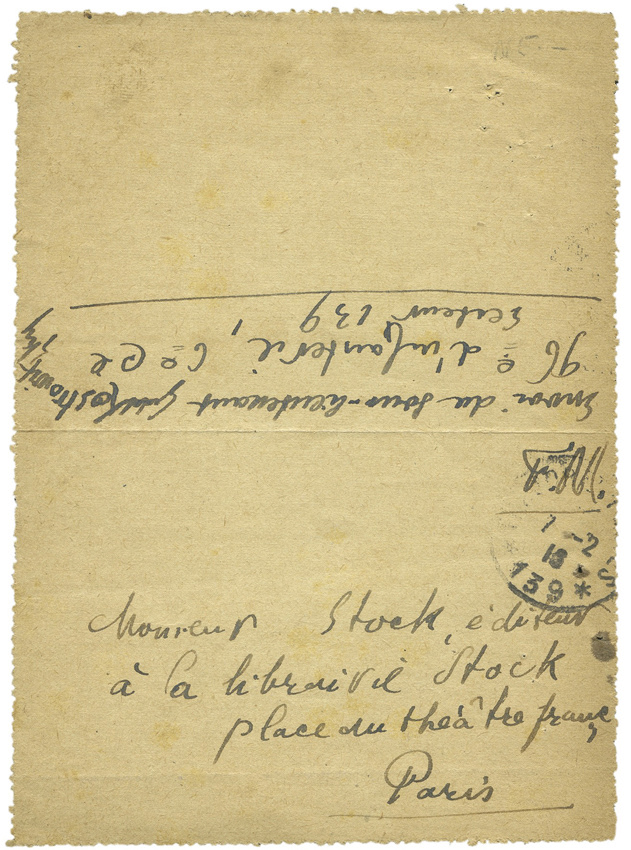 Envoi du sous-lieutenant Kostrowitzky
96e d'infanterie, 6e Cie
Secteur 139
1 -2
16
139 *
Monsieur Stock, éditeur
à la librairie Stock
place du théâtre franç
Paris